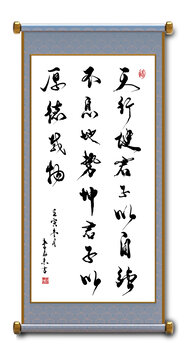 天行健君子以自强
不息地势坤君子以
厚德载物
壬寅冬月